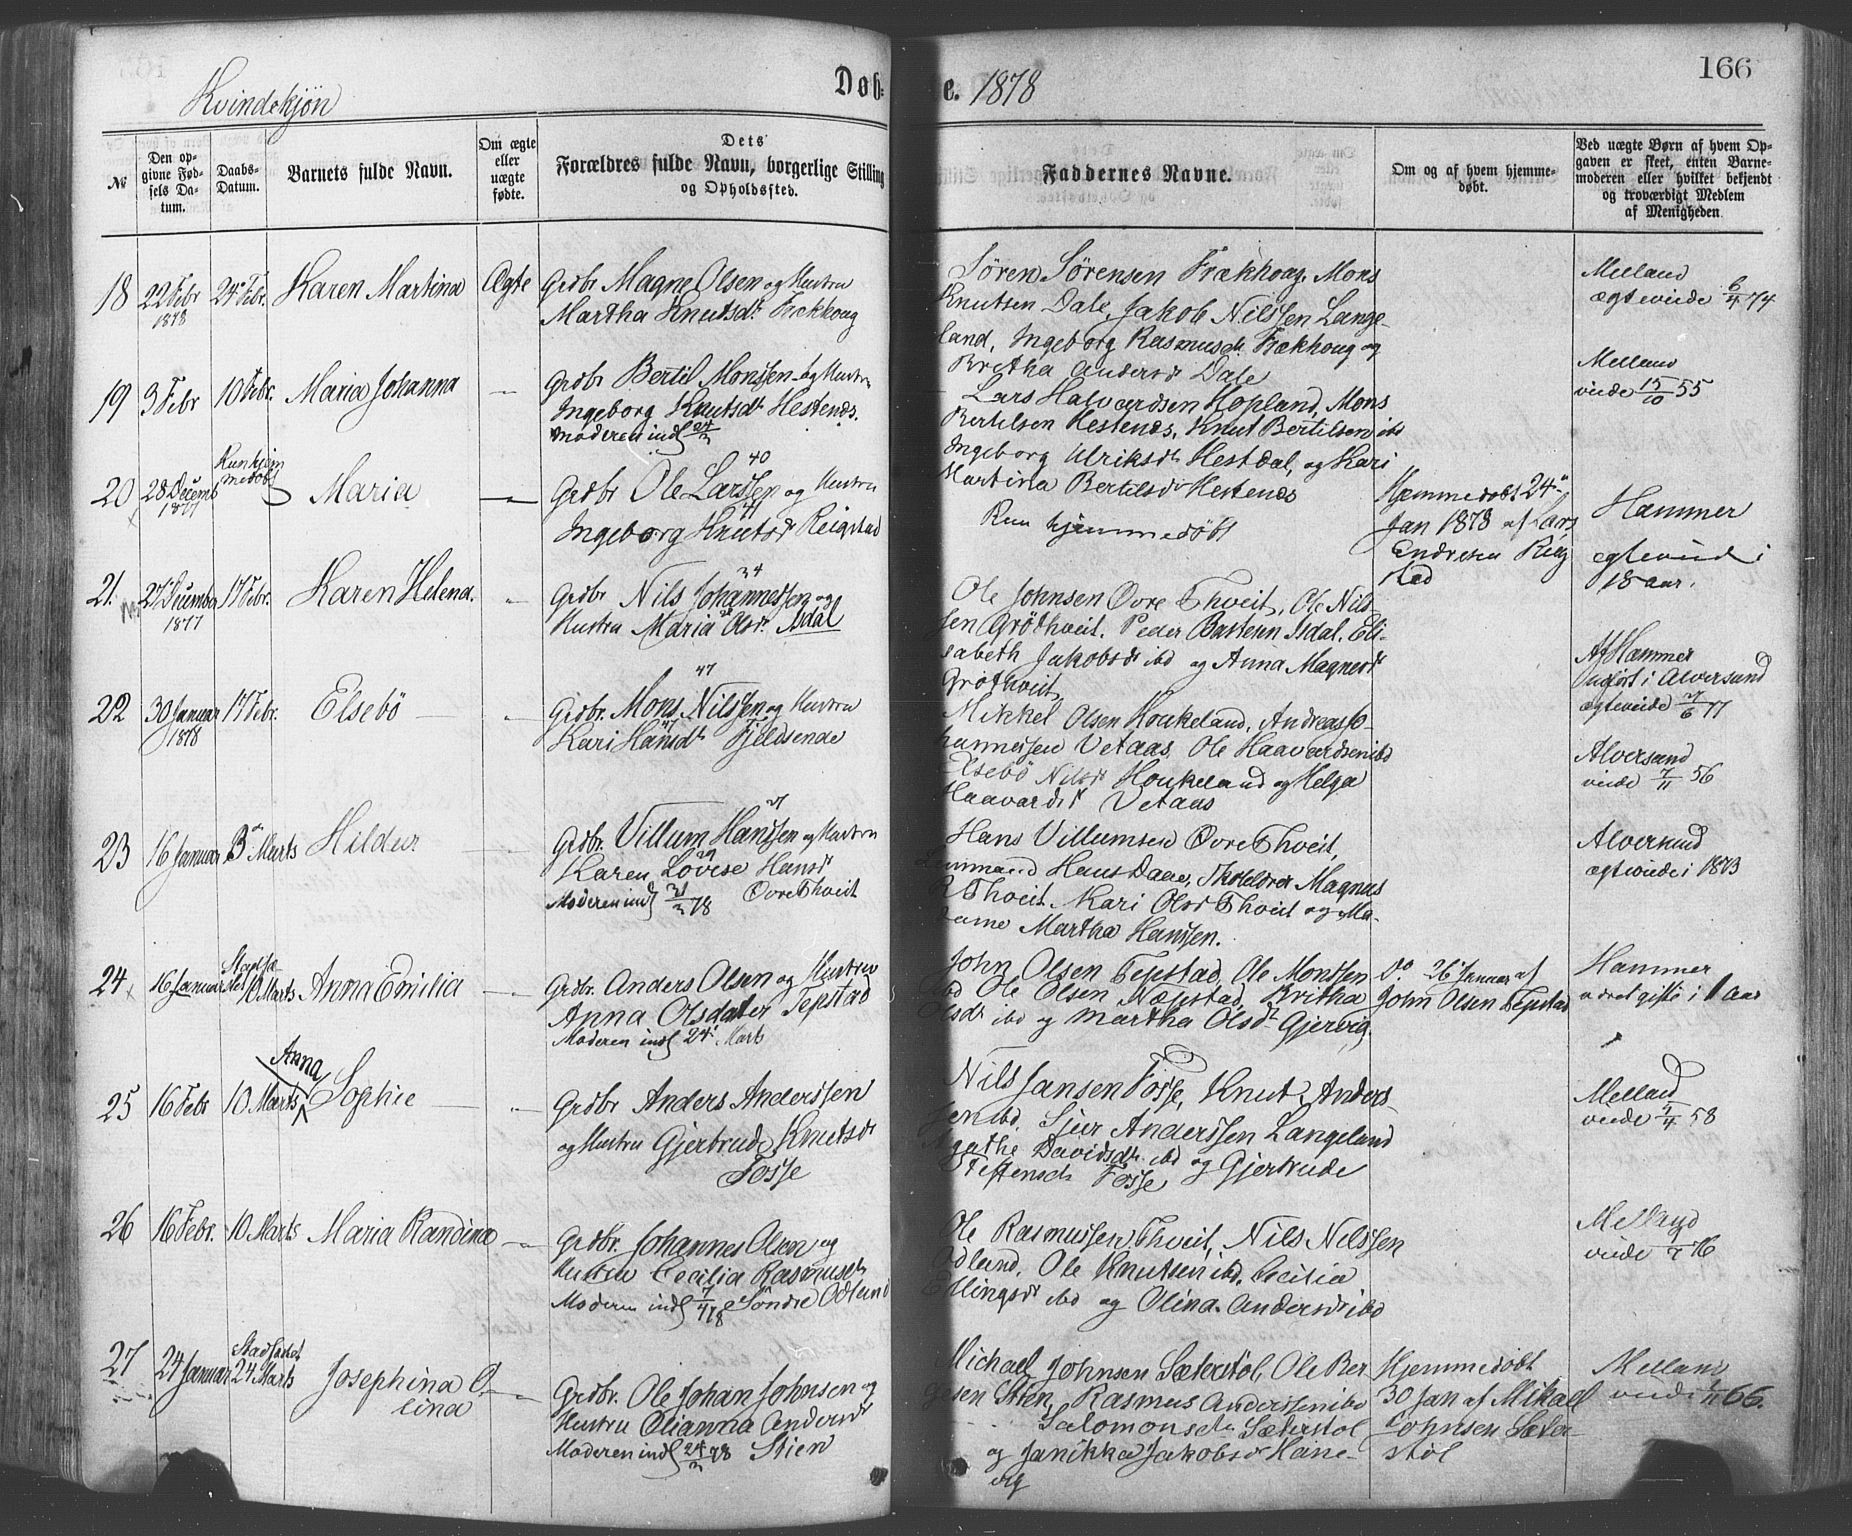 166
Kvindekjøn
Døb=
e. 1878
№
Den op-
givne Fød-
sels Da-
tum.
Daabs-
Datum.
Barnets fulde Navn.
Om ægte
eller
uægte
fødte.
Dets
Forældres fulde Navn, borgerlige Stilling
og Opholdssted.
Faddernes Navne.
Om og af hvem hjemme-
døbt.
Ved uægte Børn af hvem Op-
gaven er skeet, enten Barne-
moderen eller hvilket bekjendt
og troværdigt Medlem
af Menigheden.
18
22 Febr
1878
24 Febr.
Karen Martina
Ægte
Grdbr Magne Olsen og Hustru
Martha Knutsdr Frækhoug
Søren Sørensen Frækhoug, Mons
Knutsen Dale, Jakob Nilssen Lange-
land, Ingeborg Rasmusdr Frækhoug og
Britha Andersdr Dale
Melland
ægteviede 6/4 74
19
9 Febr
10 Febr.
Maria Johanna
Grdbr Bertil Monssen og Hustru
Ingeborg Knutsdr Hestenes.
Moderen indl 24/3
Lars Halvardsen Hopland, Mons
Bertilsen Hestenes, Knut Bertilsen ibd
Ingeborg Ulriksdr Hestdal, og Kari
Martina Bertilsdr Hestenes
Melland
viede 15/10 55
20
28 Decemb
1877
Kun hjem
medøbt
Maria
40
Grdbr Ole Larssen og Hustru
41
Ingeborg Knutsdr Reigstad
Kun hjemmedøbt
Hjemmedøbt 24
Jan 1878 af Lars
Endresen Reig
stad
Hammer
ægteviede i
18 aar.
21.
27 Decembr
1877
17 Febr.
Karen Helena.
34
Grdbr Nils Johannessen og
Hustru Maria Olsdr Isdal
Ole Johnsen Øvre Thveit, Ole Nils-
sen Grøthveit, Peder Bastesen Isdal, Eli-
sabeth Jakobsdr ibd og Anna Magnesdr
Grøthveit
Af Hammer
udført i Alversund
ægteviede 7/6 77
22
30 Januar
1878
17 Febr.
Elsebö
47
Grdbr. Mons Nilssen og Hustru
Kari Hansdr Fjeldsende
Mikkel Olsen Houkeland, Andreas Jo-
hannessen Vetaas, Ole Haavardsen ibd
Elsebö Nilsdr Houkeland og Helga
Haavardsdr Vetaas
Alversund
viede 7/11 56
23
16 Januar
3 Marts
Hildur
27
Grdbr. Villum Hanssen og Hustru
29
Karen Lovise Hansdr
Moderen indl 31/3 78 Øvre Thveit
Hans Villumsen Øvre Thveit,
Lensmand Hans Daae, Magnus
Thveit, Kari Olsdr Thveit og Ma-
dame Martha Hanssen.
Alversund
ægteviede i 1873
24
16 Januar
Stadfæ-
stet
10 Marts
Anna Emilia
Grdbr. Anders Olsen og Hustru
Anna Olsdatter Tepstad
Moderen indl 24 Marts
John Olsen Tepstad, Ole Monssen
ibd Ole Olsen Næpstad, Britha
Olsdr ibd og Martha Olsdr Gjervig
Do 26 Januar af
John Olsen Tepstad
Hammer
været gifte i 1 aar
25
16 Febr
10 Marts
Anna
Sophie
Grdbr Anders Anderssen
og Hustru Gjertrude Knutsdr
Fosse
Nils Jansen Fosse, Knut Anders-
sen ibd, Sjur Anderssen Langeland
Agathe Davidsdr ibd og Gjertrude
Steffensdr Fosse
Melland
viede 7/4 58
26
16 Febr.
10 Marts
Maria Randina
Grdbr. Johannes Olsen og
Hustru Cecilia Rasmusdr
Moderen indl 7/4 78 Søndre Odland
Ole Rasmussen Thveit, Nils Nilssen
Odland, Ole Knutsen ibd, Cecilia
Ellingsdr ibd og Olina Andersdr ibd
Melland
viede 76
27
24 Januar
Stadfæstet
24 Marts
Josephina O-
lina
Grdbr. Ole Johan Johnsen og
Hustru Olianna Andersdr
Moderen indl 24/3 78 Stien
Michael Johnsen Sæterstøl, Ole Ber
gesen Stien, Rasmus Anderssen ibd
Salomonsdr Sæterstøl
og Janikka Jakobsdr Hane-
vig
Hjemmedøbt
30 Jan af Mikael
Johnsen Sæter-
støl
Melland
viede 66.